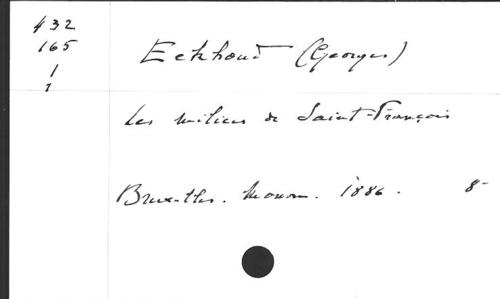 432
165
1
1
Eekhoud (Georges)
Les milices de Saint-François
Bruxelles. Monom. 1886. 8-